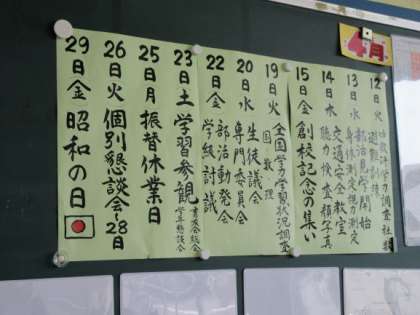 4月
12日火
避難訓練
13日水
部活見学開始
身体測定視力測定
交通安全教室
14日木
聴力検査顔写真
15日金
創校記念の集い
19日火
全国学力学習状況調査
国数理
20日水
生徒議会
専門委員会
22日金
部活動発会
学級討議
23日土
学習参観
育友会総会
学年懇談会
25日月
振替休業日
26日火
個別懇談会~28日
29日金
昭和の日